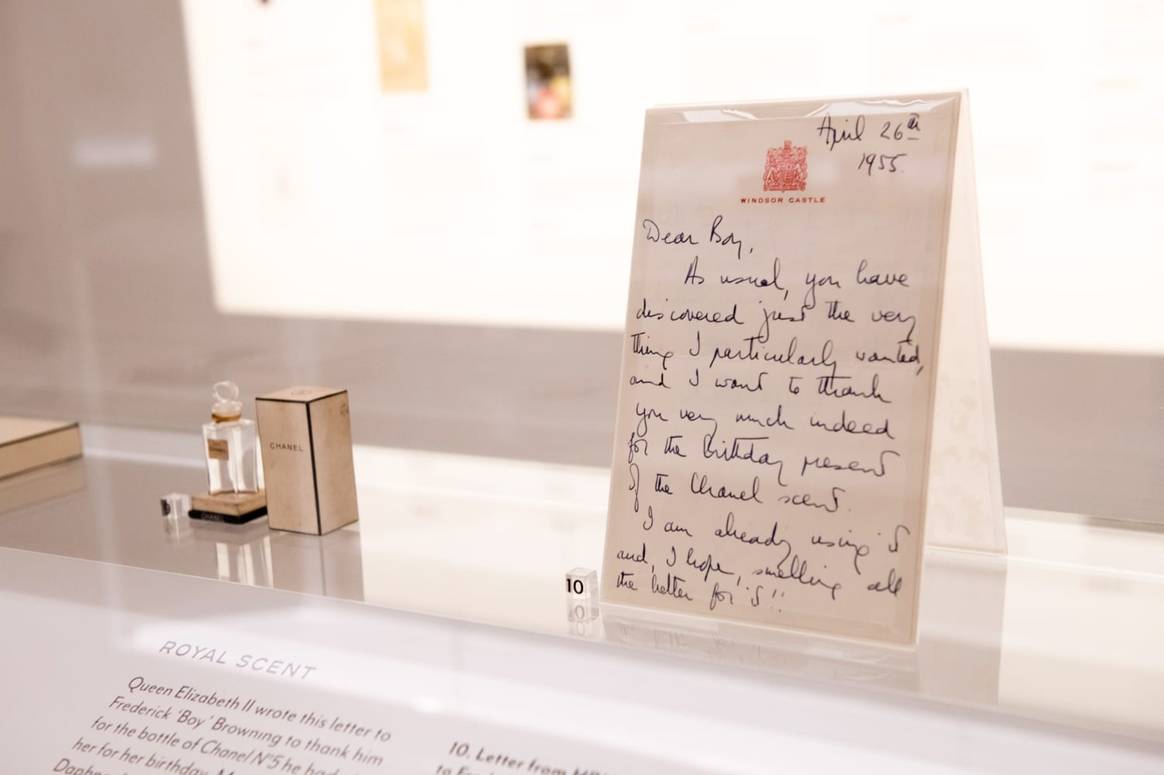 April 26th
1955.
WINDSOR CASTLE
Dear Boy,
As usual, you have
discovered just the very
thing I particularly wanted,
and I want to thank
you very much indeed
for the birthday present
of the Chanel scent.
I am already using it
and, I hope, smelling all
the better for it!!
CHANEL
CHANEL
10
ROYAL SCENT
Queen Elizabeth II wrote this letter to
Frederick 'Boy' Browning to thank him
for the bottle of Chanel Nº5 he had
her for her birthday.
10. Letter from